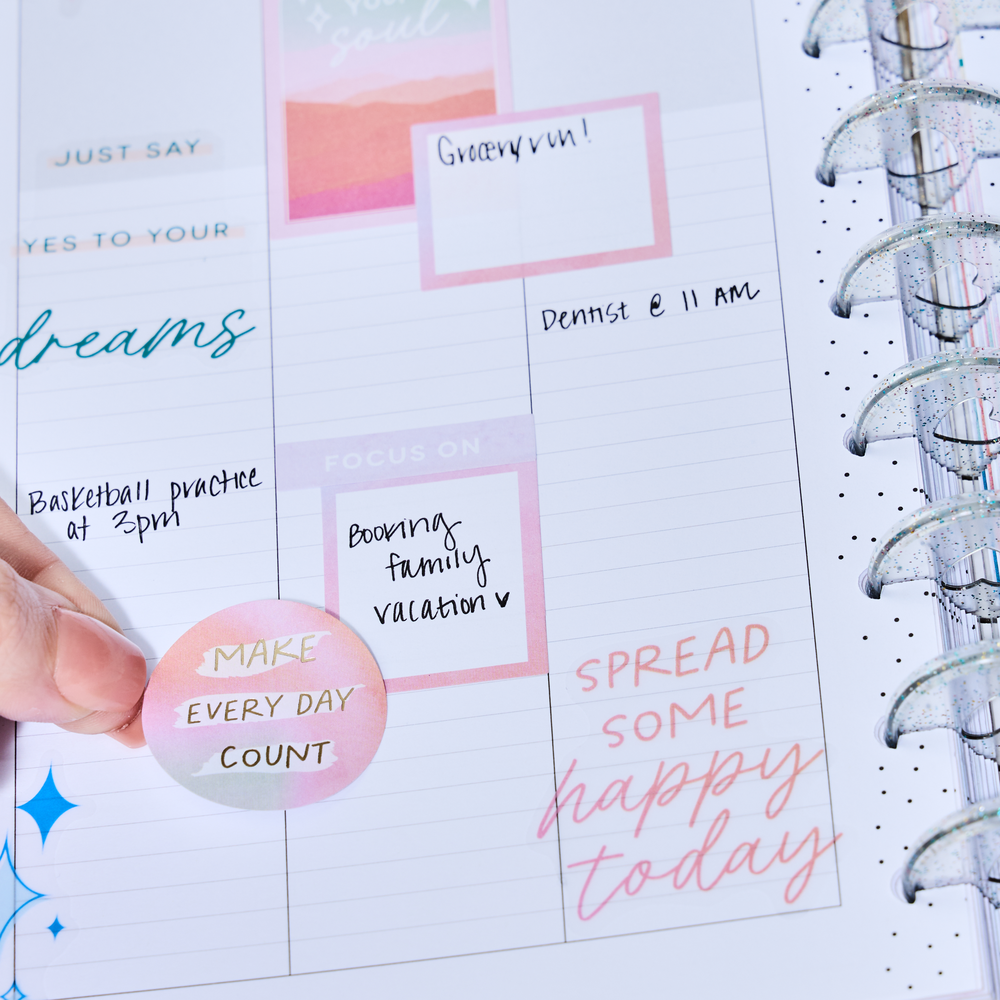 soul
JUST SAY
YES TO YOUR
dreams
Basketball practice
at 3pm
Grocery run!
FOCUS ON
Booking
family
vacation ♥
MAKE
EVERY DAY
COUNT
Dentist @ 11 AM
SPREAD
SOME
happy
today